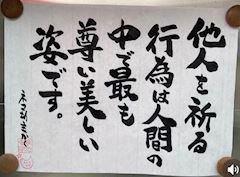 他人を祈る
行為は人間の
中で最も
尊い美しい
姿です。